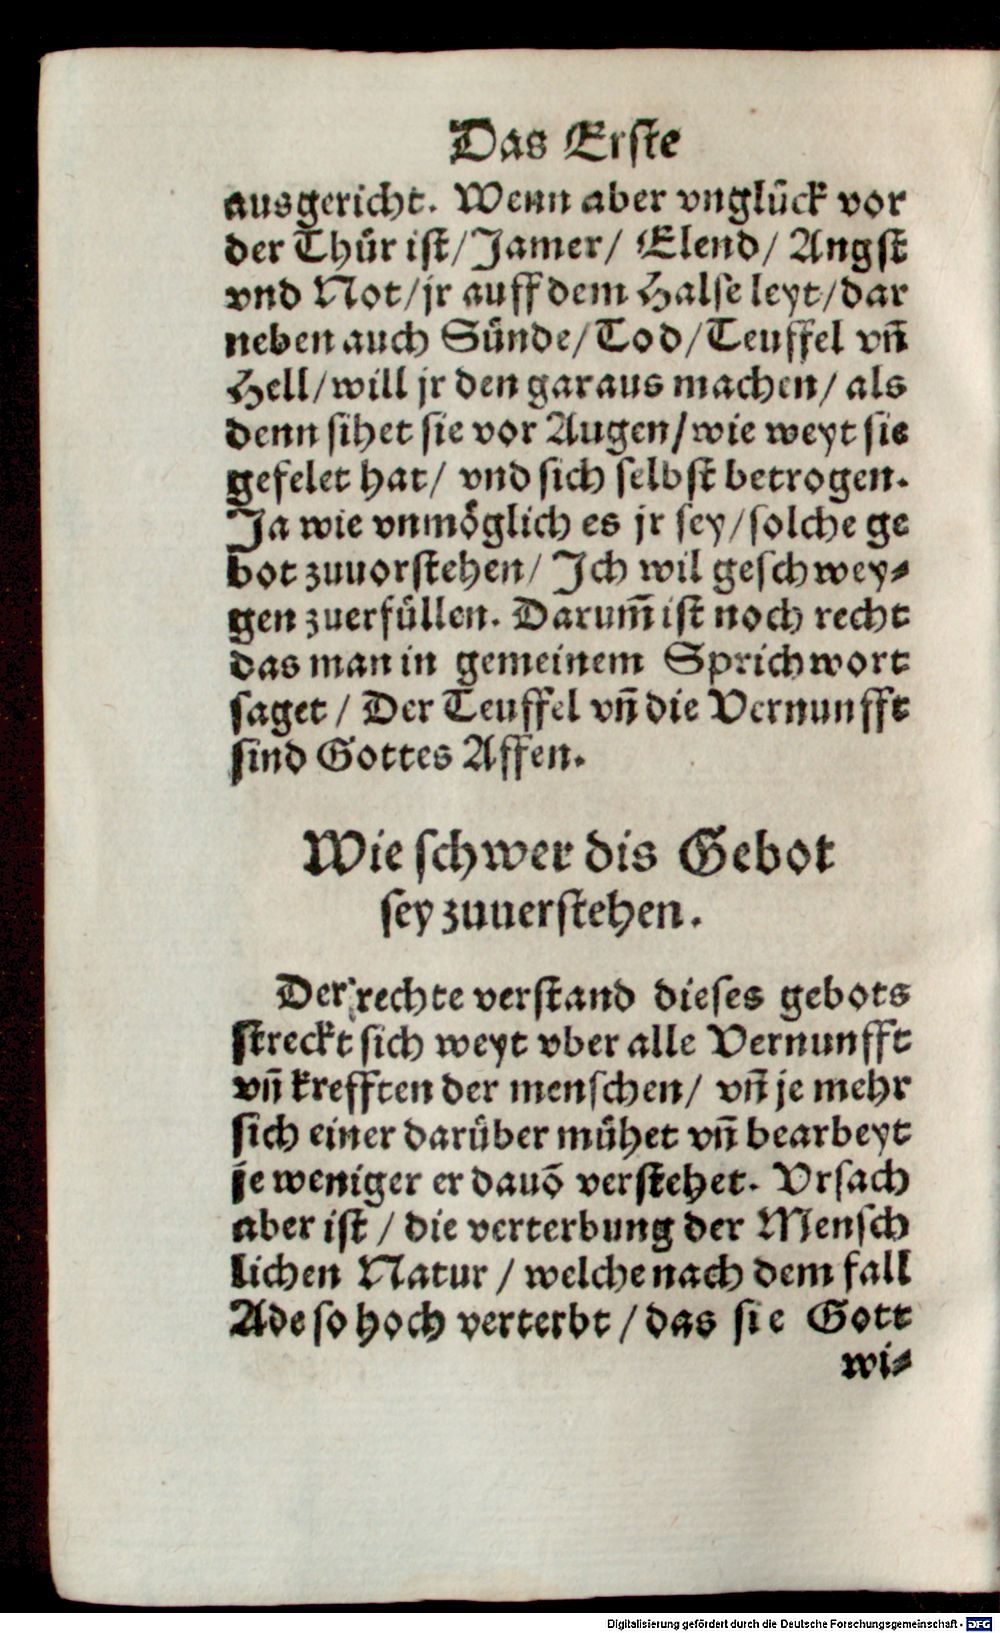 Das Erſte
ausgericht. Wenn aber vnglück vor
der Thür iſt/Jamer/ Elend/ Angſt
vnd Not/jr auff dem Halſe leyt/dar
neben auch Sünde/Tod/Teuffel vñ
Hell/will jr den garaus machen/ als
denn ſihet ſie vor Augen/wie weyt ſie
gefelet hat/ vnd ſich ſelbſt betrogen.
Ja wie vnmöglich es jr ſey/ſolche ge
bot zuuorſtehen/ Ich wil geſchwey⸗
gen zuerfüllen. Darum̃ iſt noch recht
das man in gemeinem Sprichwort
ſaget / Der Teuffel vñ die Vernunfft
ſind Gottes Affen.
Wie ſchwer dis Gebot
ſey zuuerſtehen.
Der rechte verſtand dieſes gebots
ſtreckt ſich weyt vber alle Vernunfft
vñ krefften der menſchen/ vñ je mehr
ſich einer darüber mühet vñ bearbeyt
je weniger er dauõ verſtehet. Vrſach
aber iſt / die verterbung der Menſch
lichen Natur / welche nach dem fall
Ade ſo hoch verterbt / das ſie Gott
wi⸗
Digitalisierung gefördert durch die Deutsche Forschungsgemeinschaft - DFG